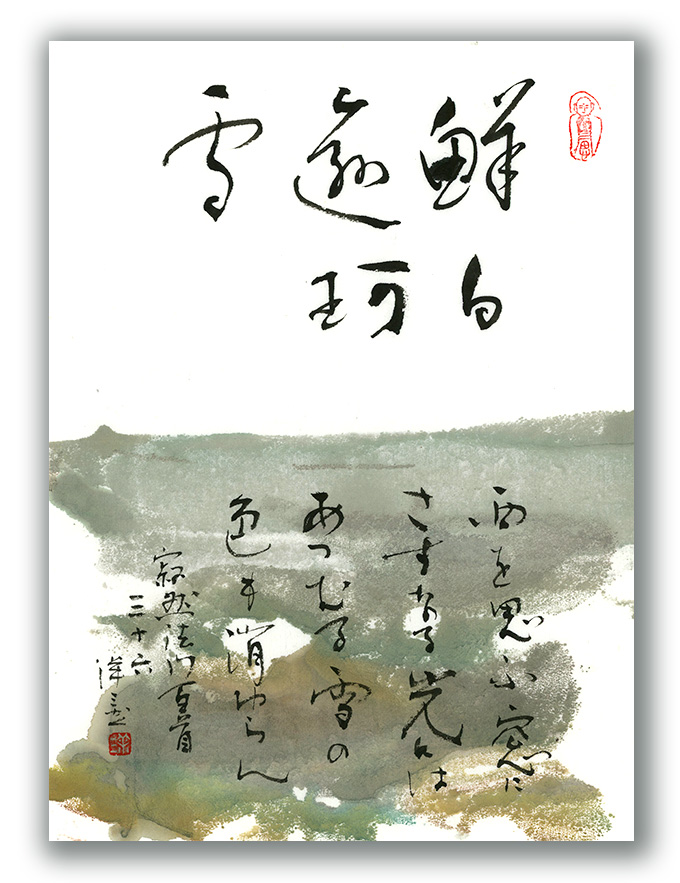 鮮白
逾珂
雪
西を思ふ窓に
さすなる光には
あつむる雪の
色も消ゆらん
寂然法門百首
三十六